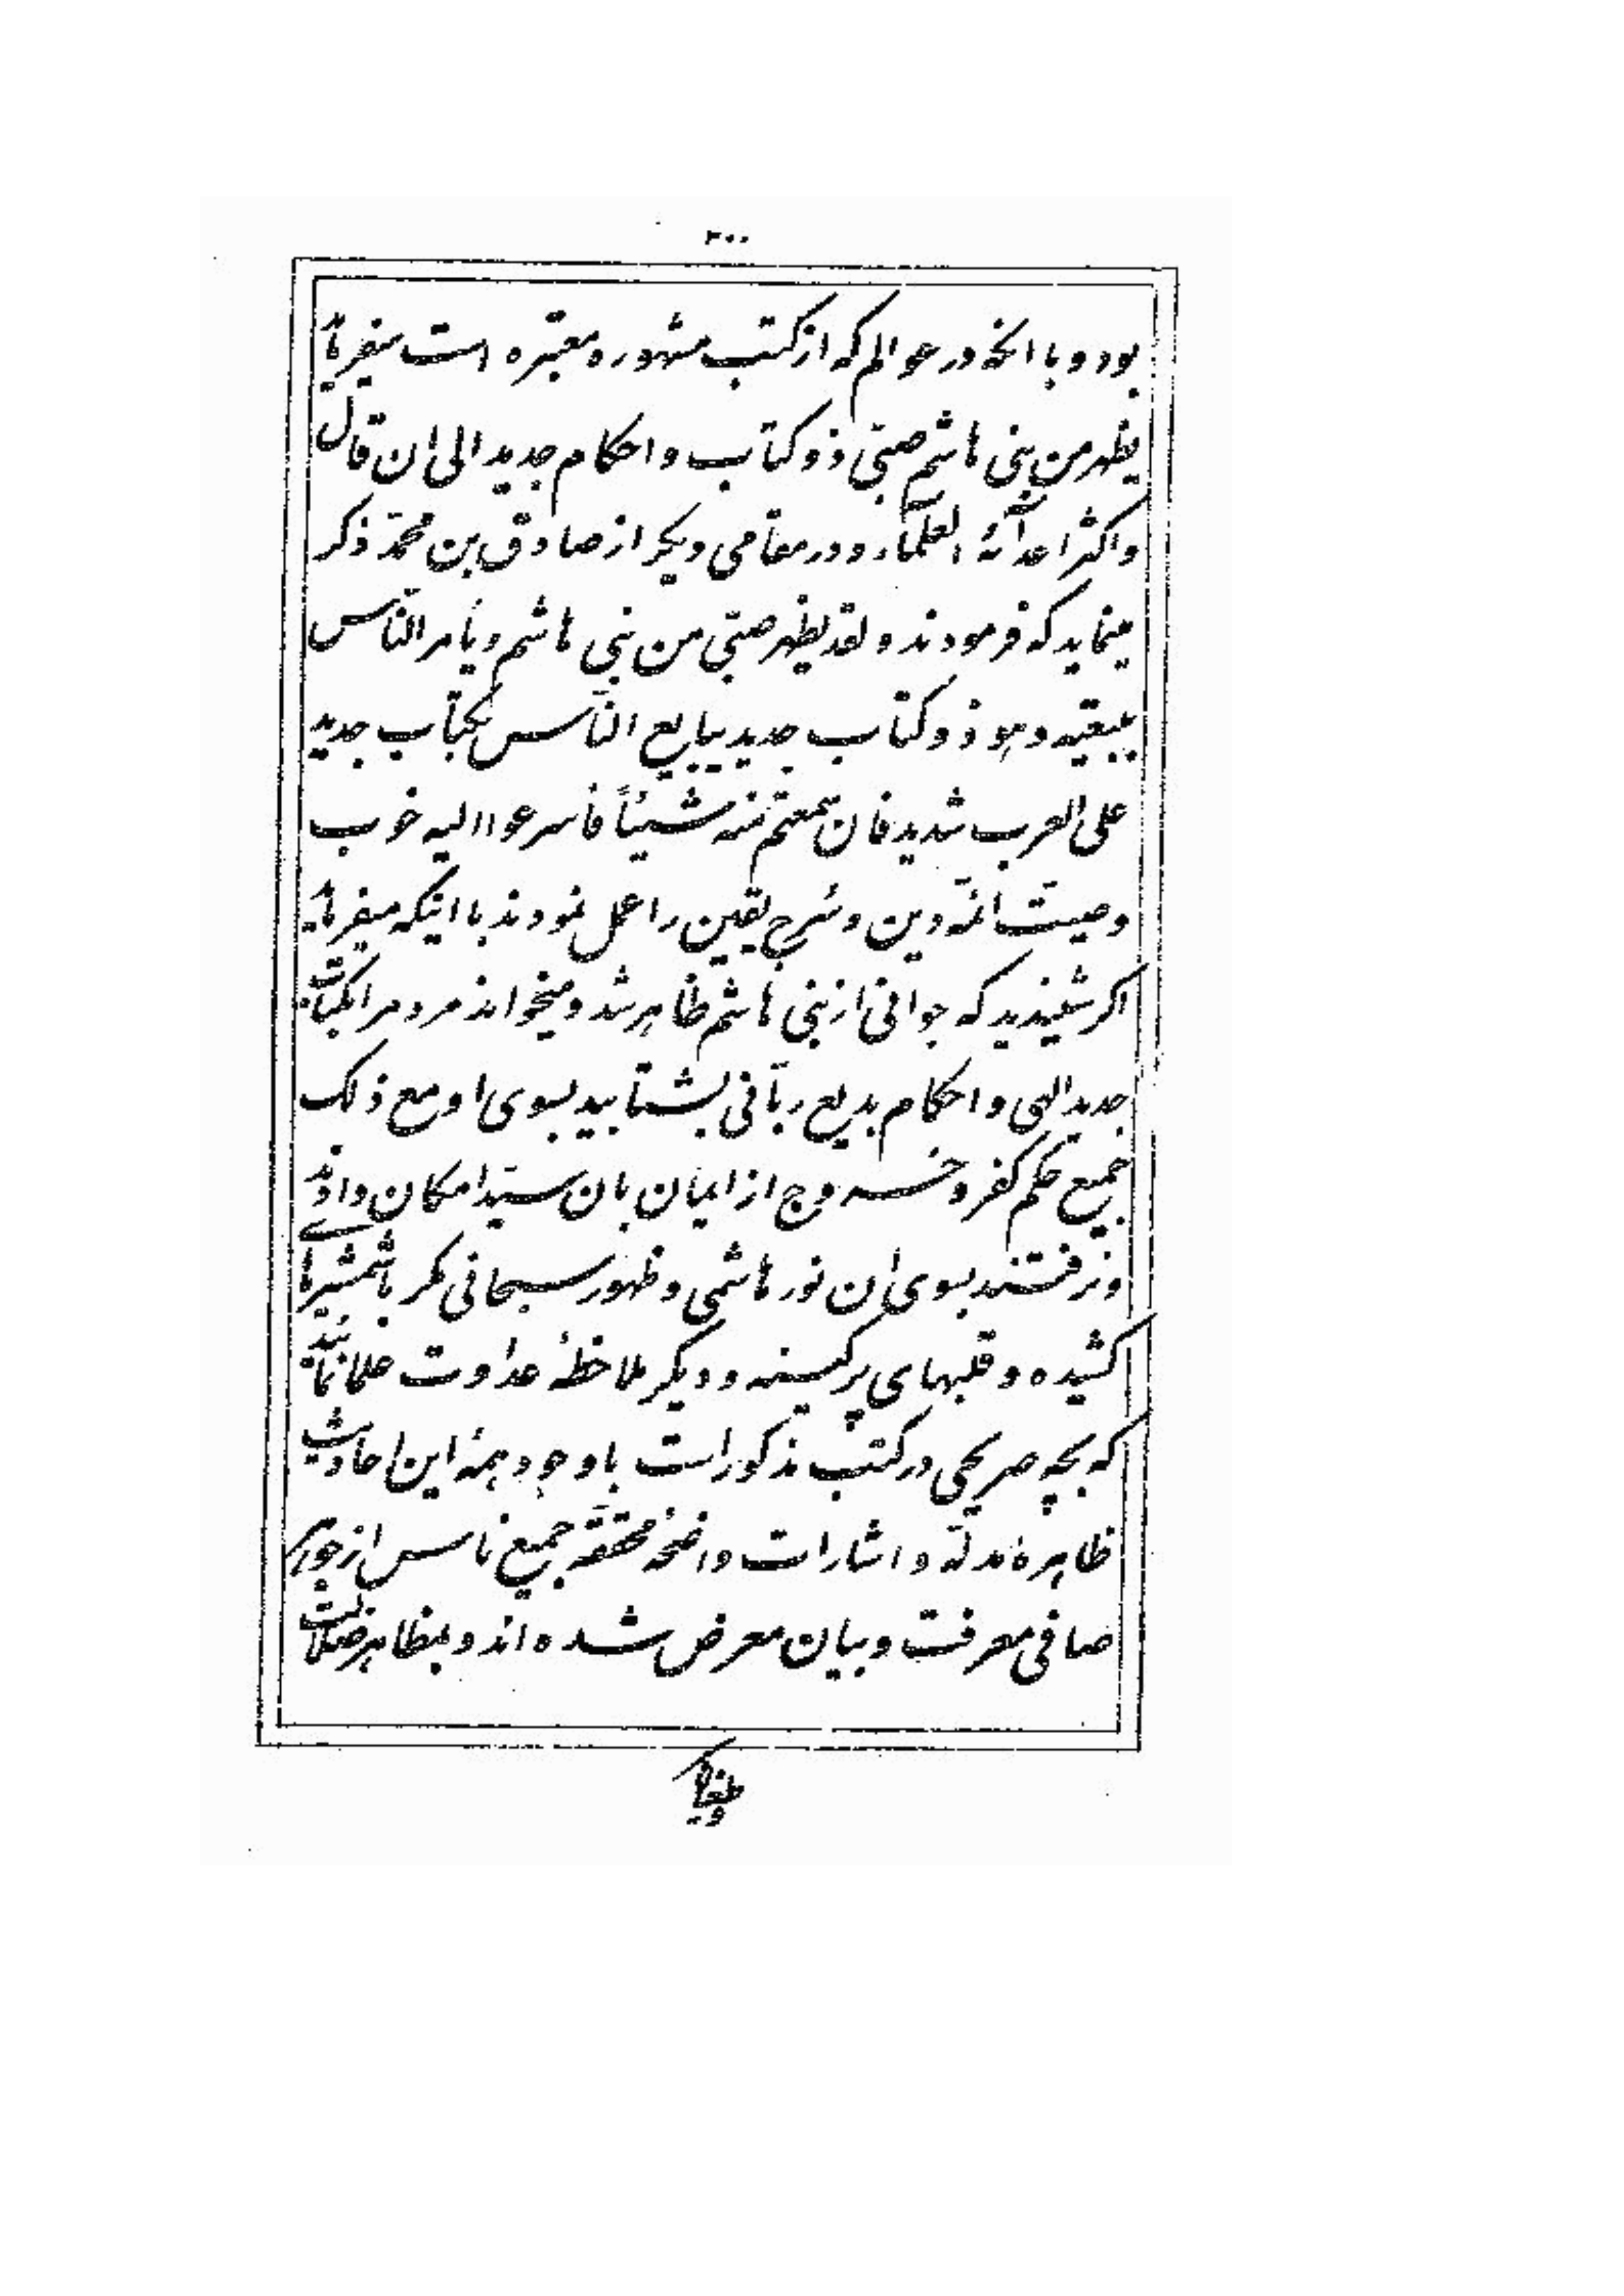 ۲۰۰
بود و با انکه در عوالم که از کتب مشهوره معتبره است میفرماید
یظهر من بنی هاشم صبیّ ذو کتاب و احکام جدید الی ان قال
و اکثر اعدآئه العلمآء و در مقامی دیگر از صادق بن محمّد ذکر
مینماید که فرمودند و لقد یظهر صبیّ من بنی هاشم و یأمر النّاس
ببیعته و هو ذو کتاب جدید یبایع النّاس بکتاب جدید
علی العرب شدید فان سمعتم منه شیئاً فاسرعوا الیه خوب
وصیّت ائمّه دین و سُرج یقین را عمل نمودند با اینکه میفرماید
اکر شنیدید که جوانی از بنی هاشم ظاهر شد و میخواند مردم را بکتاب
جدید الهی و احکام بدیع ربّانی بشتابید بسوی او مع ذلک
جمیع حکم کفر و خروج از ایمان بان سیّد امکان دادند
و نرفتند بسوی ان نور هاشمی و ظهور سبحانی مکر با شمشیرهای
کشیده و قلبهای پرکینه و دیکر ملاحظهٔ عداوت علما نمائید
که بچه صریحی در کتب مذکور است با وجود همهٔ این احادیث
ظاهره مدلّه و اشارات واضحه محقّقه جمیع ناس از جوهر
صافی معرفت و بیان معرض شده اند و بمظاهر ضلالت
و طغیان